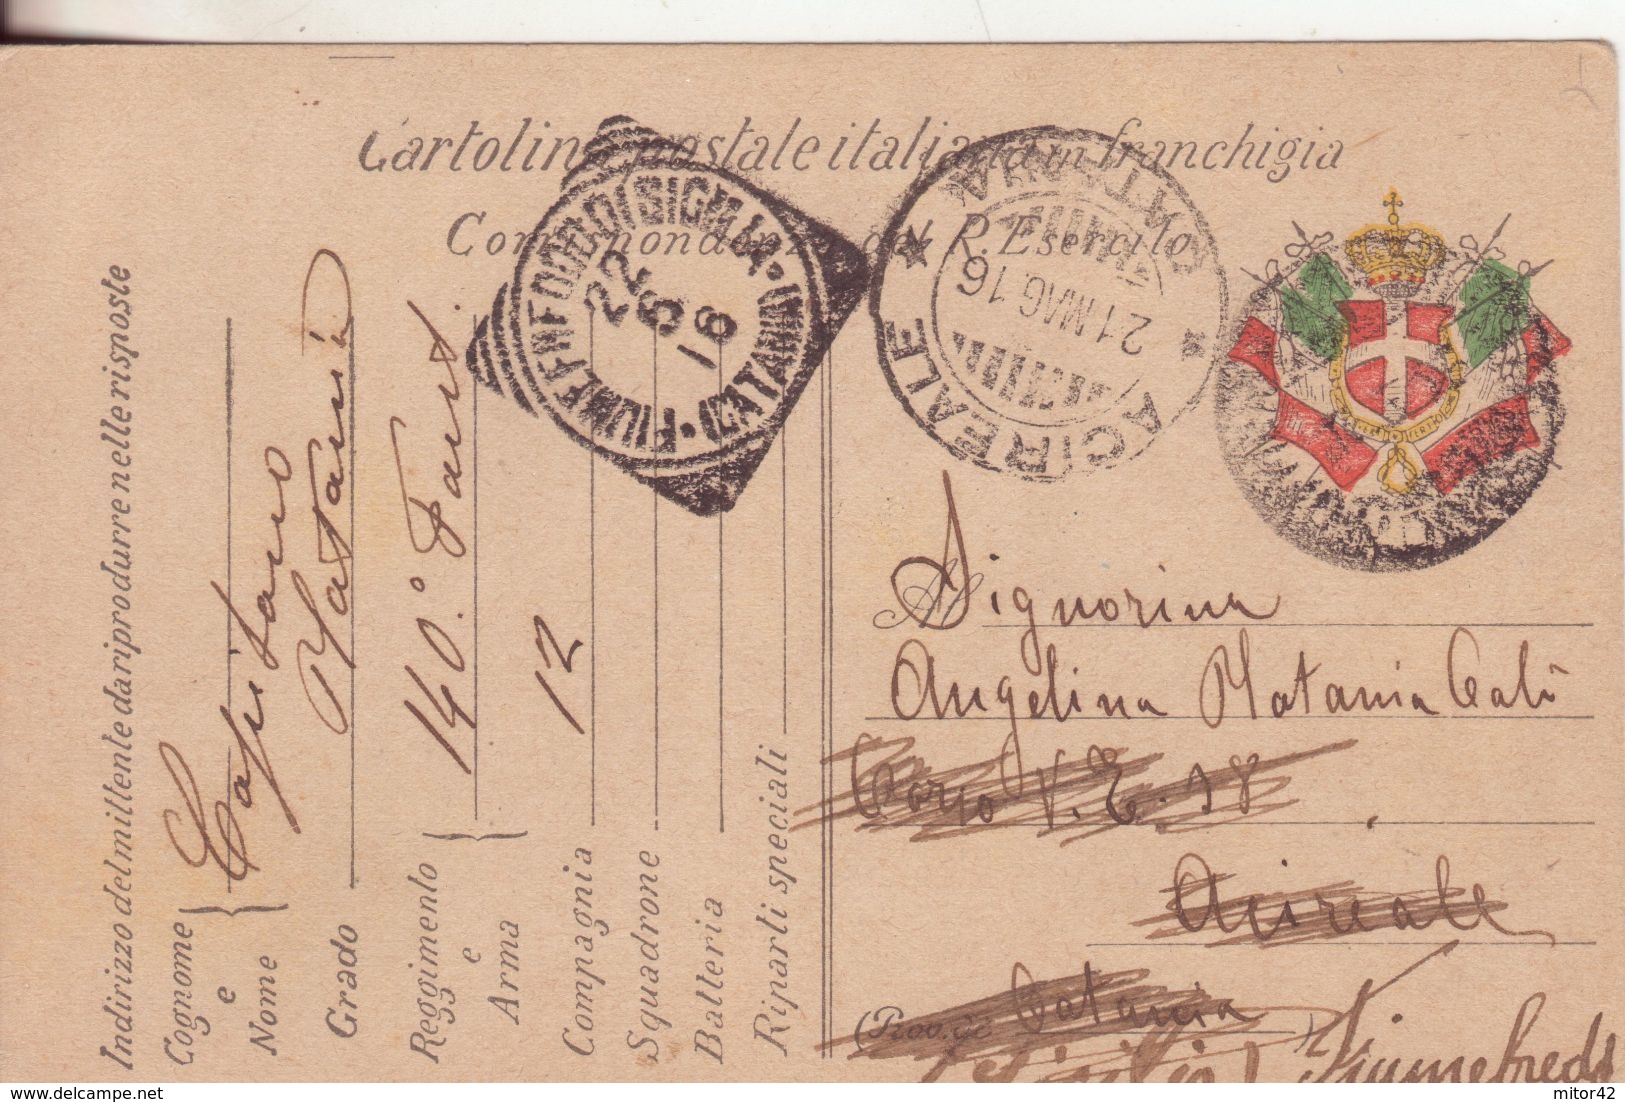 Cartolina postale italiana in franchigia
Corrispondenza del R. Esercito
Indirizzo del mittente da riprodurre nelle risposte
Cognome
e
Nome
Capitano
Grado
Platania
Reggimento
e
Arma
140.° Fant.
Compagnia
12
Squadrone
Batteria
Riparti speciali
FIUMEFREDDO DI SICILIA · (CATANIA) ·
22 5 16
ACIREALE * CATANIA *
21 MAG. 16
FERT
Al Signorina
Angelina Platania Calì
Corso V. E. 18
Acireale
(Prov. di Catania)
(Sicilia) Fiumefreddo
© delcampe.net
mitor42